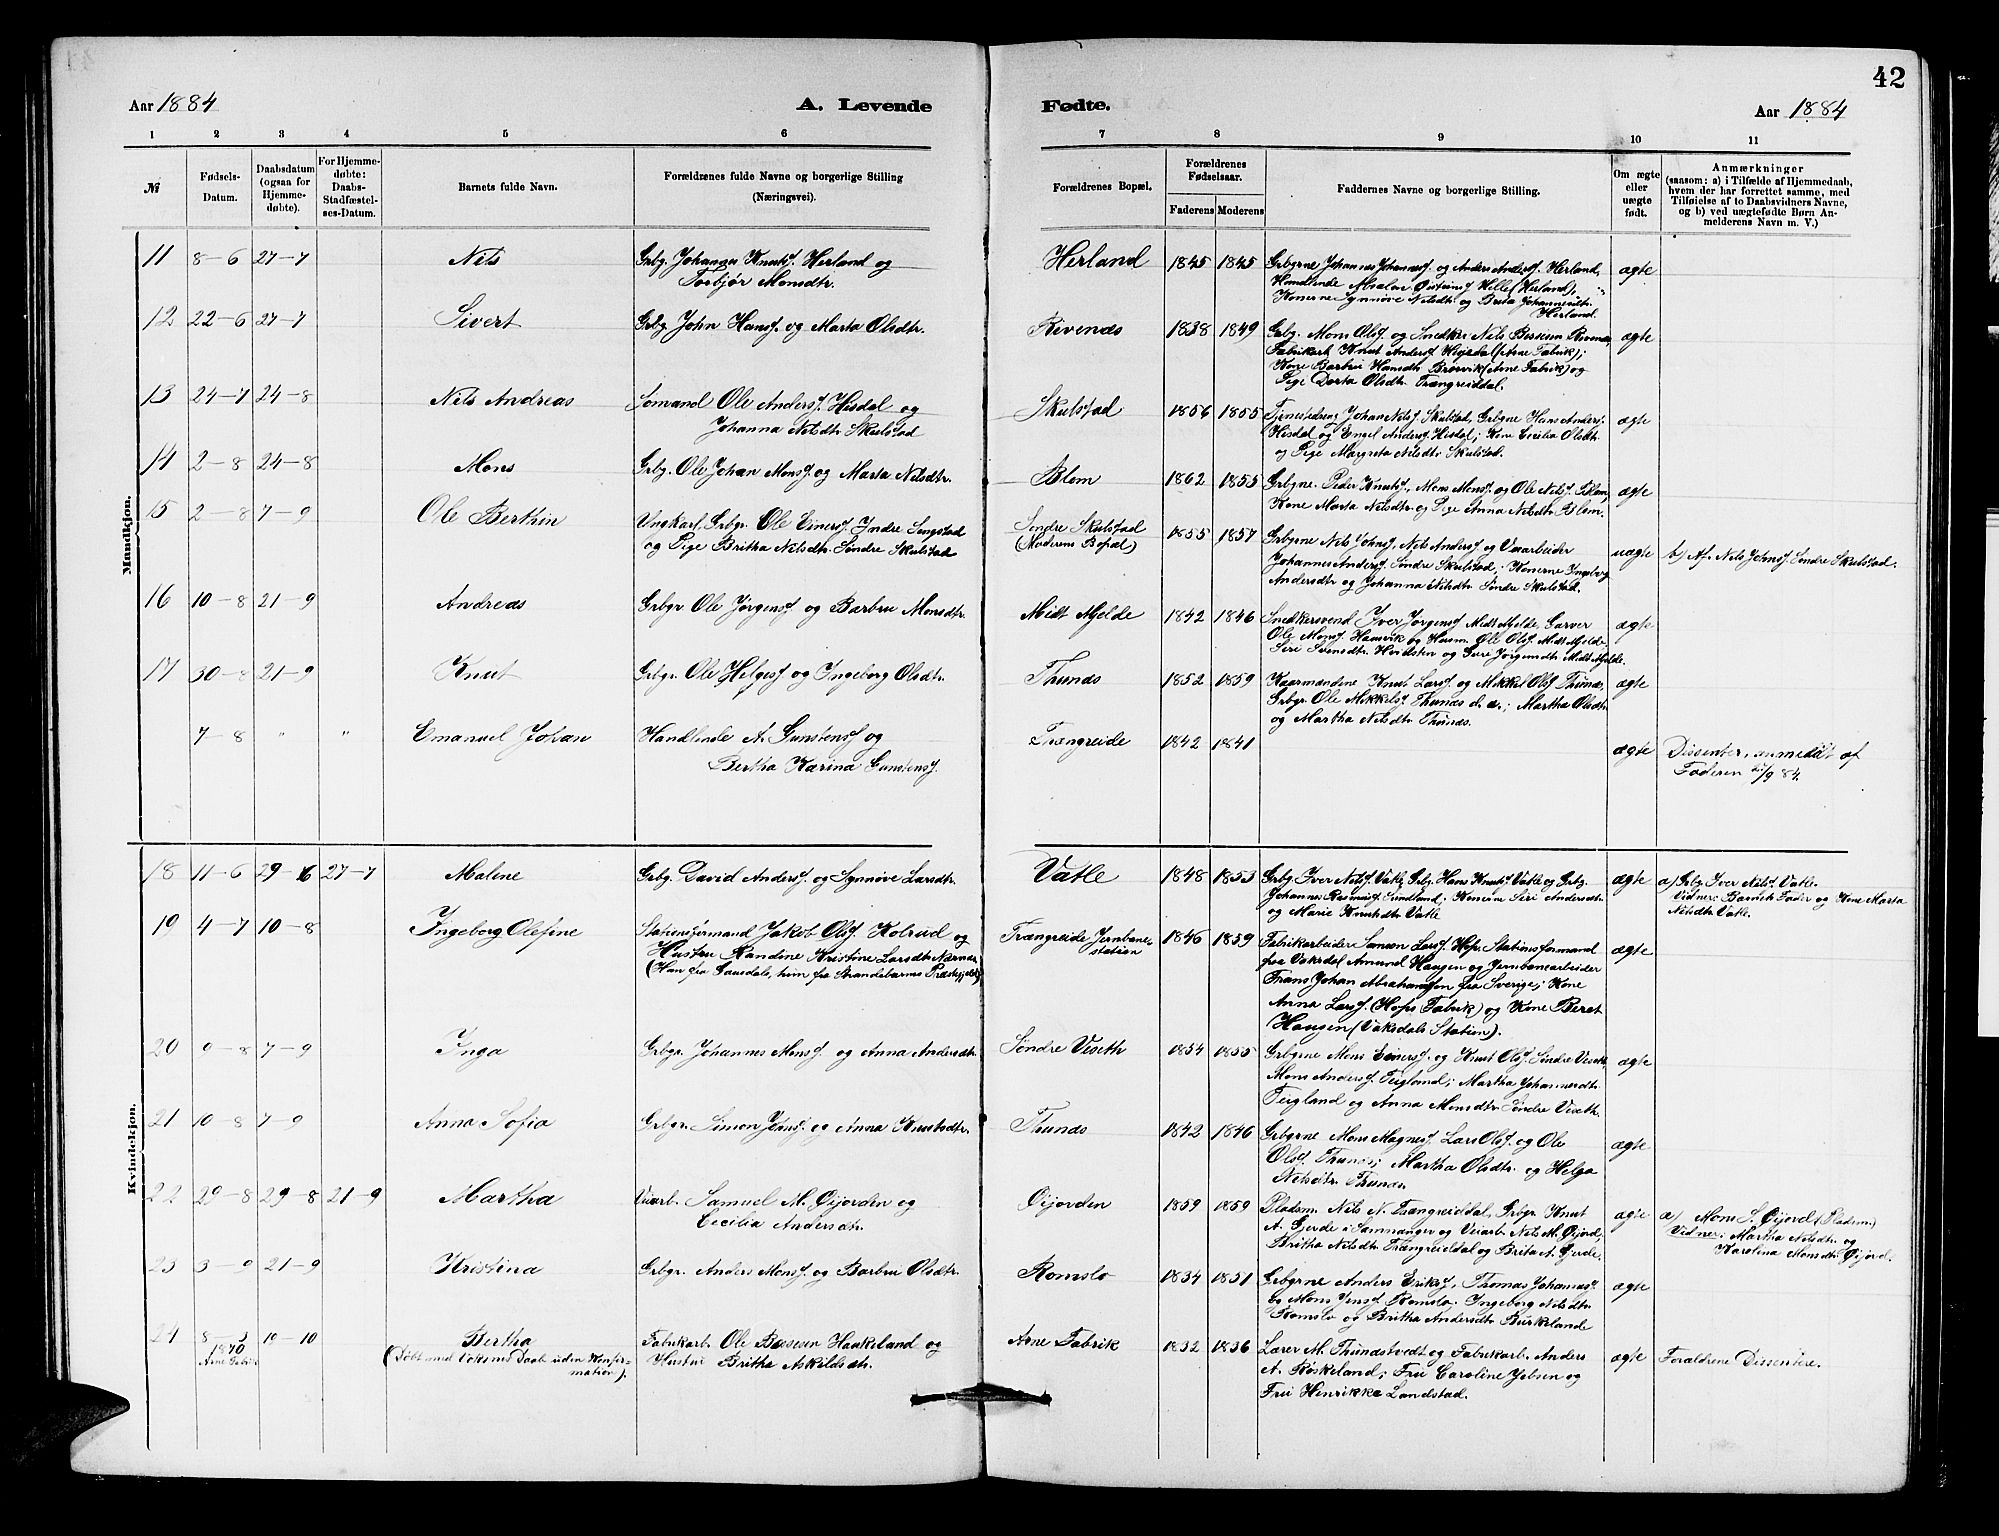 42
Aar 1884 A. Levende Fødte. Aar 1884
1 2 3 4 5 6 7 8 9 10 11
№
Fødsels-
Datum.
Daabsdatum
(ogsaa for
Hjemme-
døbte).
For Hjemme-
døbte:
Daabs-
Stadfæstel-
ses-Datum.
Barnets fulde Navn.
Forældrenes fulde Navne og borgerlige Stilling
(Næringsvei).
Forældrenes Bopæl.
Forældrenes
Fødselsaar.
Faderens Moderens
Faddernes Navne og borgerlige Stilling.
Om ægte
eller
uægte
født.
Anmærkninger
(saasom: a) i Tilfælde af Hjemmedaab,
hvem der har forrettet samme, med
Tilføielse af to Daabsvidners Navne,
og b) ved uægtefødte Børn An-
melderens Navn m. V.)
Mandkjøn.
11 8-6 27-7 Nels Grbg. Johannes Knuts. Herland og
Torbjør Monsdtr.
Herland 1845 1845 Grbgrne Johannes Johanness. og Anders Anders. Herland,
Handlende Absalon Øisteins. Helle (Herland),
Konerne Synnøve Nelsdtr. og Brita Johannesdtr.
Herland.
ægte
12 22-6 27-7 Sivert Grbg. John Hans. og Marta Olsdtr.
Rivenæs 1838 1849 Grbg. Mons Ols. og Snedker Nils Rivenæs,
Fabrikarb. Knut Anders. (Arne Fabrik);
Kone Barbru Hansdtr. Brørvik (Arne Fabrik) og
Pige Dorta Olsdtr. Trængreiddal.
ægte
13 24-7 24-8 Nils Andreas Sømand Ole Anders. Hisdal og
Johanna Nelsdtr. Skulstad
Skulstad 1856 1855 Tjenestedreng Johan Nels. Skulstad, Grbgne Hans Anders.
Hisdal og Engel Anders. Hisdal; Kone Cecilia Olsdtr.
og Pige Margreta Nelsdtr. Skulstad.
ægte
14 2-8 24-8 Mons Grbg. Ole Johan Mons. og Marta Nelsdtr.
Blom 1862 1855 Grbgne. Peder Knuts., Mons Mons. og Ole Nels. Blom,
Kone Marta Nelsdtr. og Pige Anna Nelsdtr. Blom.
ægte
15 2-8 7-9 Ole Berthin Ungkarl, Grbgr. Ole Einers. Indre Songstad
og Pige Britha Nelsdtr. Søndre Skulstad
Søndre Skulstad
(Moderens Bopæl)
1855 1857 Grbgrne Nels Johns., Nels Anders. og Veiarbeider
Johannes Anders. Søndre Skulstad; Konerne Ingeborg
Andersdtr. og Johanna Nelsdtr. Søndre Skulstad.
uægte b) Af Nels Johns. Søndre Skulstad.
16 10-8 21-9 Andreas Grbgr. Ole Jørgens. og Barbru Monsdtr.
Midt Mjelde 1842 1846 Snedkersvend Iver Jørgens. Midt Mjelde, Garver
Ole Mons. Hamrvik og Husm. Ole Ols. Midt Mjelde.
Siri Svensdtr. og Guri Jørgensdtr. Midt Mjelde.
ægte
17 30-8 21-9 Knut Grbgr. Ole Helges. og Ingeborg Olsdtr.
Thunæs 1852 1859 Kaarmændene Knut Lars. og Mikkel Ols. Thunæs,
Grbgr. Ole Mikkels. Thunæs d. æ.; Martha Olsdtr.
og Martha Nelsdtr. Thunæs.
ægte
7-8 " " Emanuel Johan Handlende A. Gunstens. og
Bertha Karina Gunstens.
Trængreide 1842 1841 ægte Dissenter, anmeldt af
Faderen /9 84.
Kvindekjøn.
18 11-6 29-6 27-7 Malene Grbg. David Anders. og Synnøve Larsdtr.
Vatle 1848 1853 Grbg. Iver Nels. Vatle, Grbg. Hans Knuts. Vatle og Grbg.
Johannes Rasmus. Sundland; Konerne Siri Andersdtr.
og Marie Knutsdtr. Vatle
ægte a) Grbg. Iver Nels. Vatle.
Vidner: Barnets Fader og Kone Marta
Nelsdtr. Vatle.
19 4-7 10-8 Ingeborg Olefine Stationsformand Jakob Ols. Kolrud og
Hustru Randine Kristine Larsdtr. Nærnæs
(Han fra Gausdale, hun fra Strandebarms Præstegjeld)
Trængreide Jernbane-
station
1846 1859 Fabrikarbeider Samson Lars. Hop, Stationsformand
fra Vaksdal Amund Haugen og Jernbanearbeider
Frans Johan Abrahamson fra Sverige; Kone
Anna Lars. (Hops Fabrik) og Kone Beret
Haugen (Vaksdals Station).
ægte
20 9-8 7-9 Inga Grbgr. Johannes Mons. og Anna Andersdtr.
Søndre Viseth 1854 1855 Grbgrne Mons Einers. og Knut Ols. Søndre Viseth,
Mons Anders. Teigland; Martha Johannesdtr.
Teigland og Anna Monsdtr. Søndre Viseth.
ægte
21 10-8 7-9 Anna Sofia Grbgr. Simon Jens. og Anna Knutsdtr.
Thunæs 1842 1846 Grbgrne Mons Magnes., Lars Ols. og Ole
Ols. Thunæs; Martha Olsdtr. og Helga
Nelsdtr. Thunæs.
ægte
22 29-8 29-8 21-9 Martha Veiarb. Samuel M. Øijorden og
Cecilia Andersdtr.
Øijorden 1859 1859 Pladsm. Nels N. Trængreiddal, Grbgr. Knut
A. Gjerde i Samnanger og Veiarb. Nels M. Øijord,
Britha Nelsdtr. Trængreiddal og Brita A. Gjerde.
ægte a) Mons S. Øijord (Pladsm.)
Vidner: Martha Nelsdtr. og
Karolina Monsdtr. Øijord.
23 3-9 21-9 Kristina Grbgr. Anders Mons. og Barbru Olsdtr.
Romslo 1834 1851 Grbgrne Anders Eriks., Thomas Johannes.
og Mons Jens. Romslo. Ingeborg Nelsdtr.
Romslo og Britha Andersdtr. Birkelande
ægte
24 8-3
1870
Arne Fabrik
19-10 Bertha
(Døbt med Voksnes Daab uden Konfir-
mation).
Fabrikarb. Ole Haukeland og
Hustru Britha Askildsdtr.
Arne Fabrik 1832 1836 Lærer M. Thunstvedt og Fabrikarb. Anders
A. Røskeland; Fru Caroline Jebsen og
Fru Henrikke Landstad.
ægte Forældrene Dissentere.